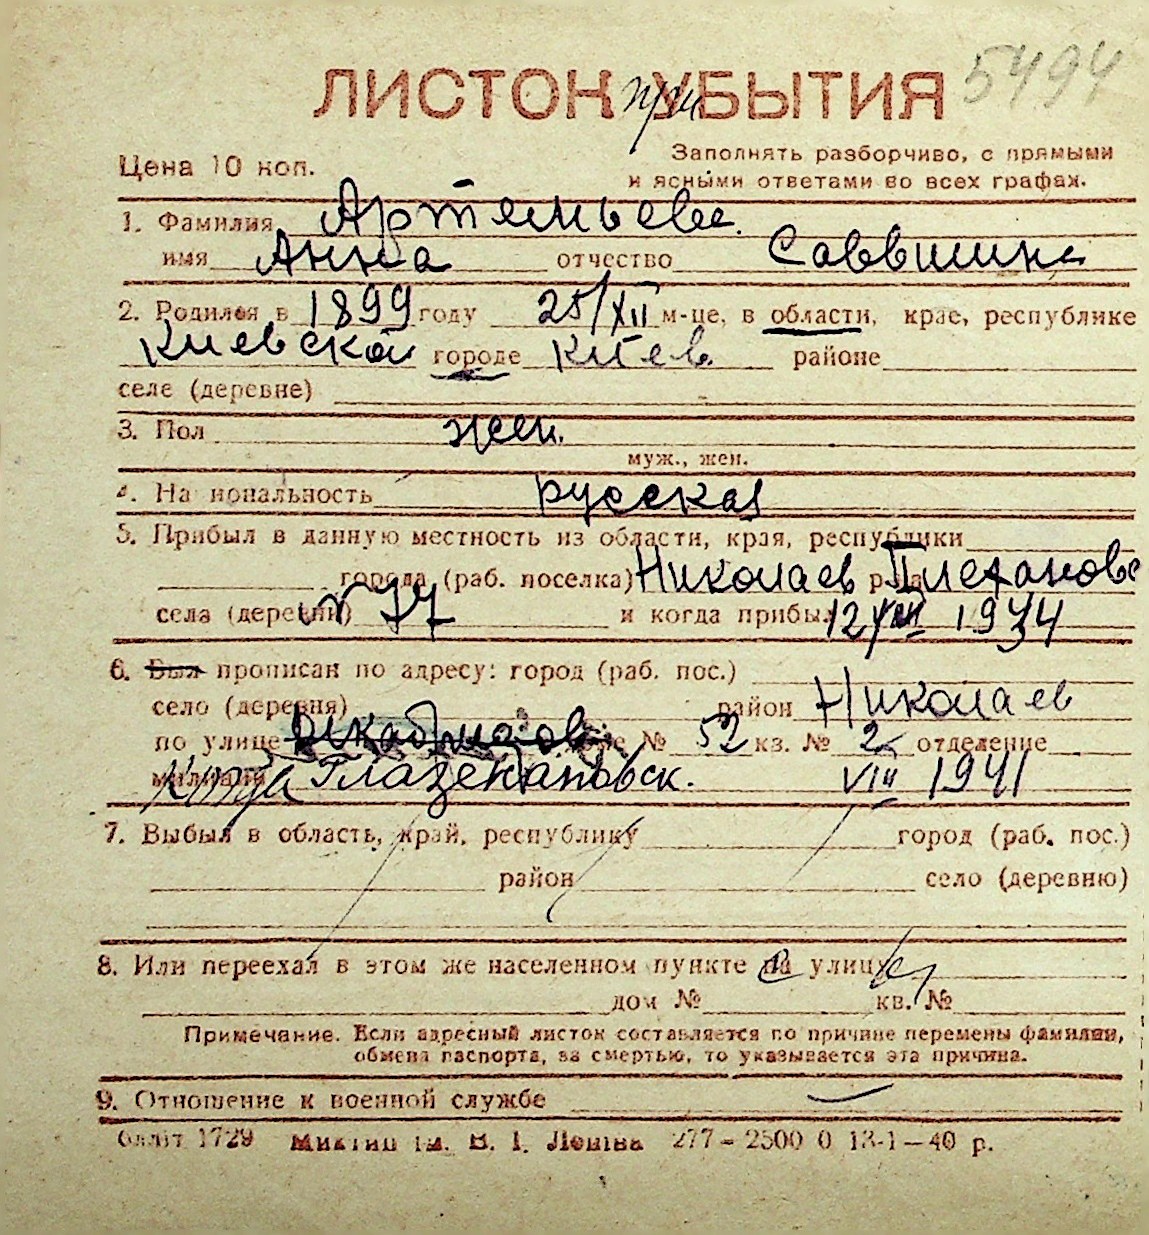 5494
ЛИСТОК при УБЫТИЯ
Цена 10 коп.
Заполнять разборчиво, с прямыми
и ясными ответами во всех графах.
1. Фамилия Артемьева
имя Анна отчество Саввишна
2. Родился в 1899 году 25/XII м-це, в области, крае, республике
Киевской городе Киев районе
селе (деревне)
3. Пол жен.
муж., жен.
4. Национальность русская
5. Прибыл в данную местность из области, края, республики
города (раб. поселка) Николаев Плехановс
села (деревни) 77 и когда прибыл 12/VIII 1944
6. Был прописан по адресу: город (раб. пос.)
село (деревня) район Николаев
по улице № 52 кв. № 2 отделение
милиции Глазенаповск. VIII 1941
7. Выбыл в область, край, республику город (раб. пос.)
район село (деревню)
8. Или переехал в этом же населенном пункте на улицу
дом № кв. №
Примечание. Если адресный листок составляется по причине перемены фамилии,
обмена паспорта, за смертью, то указывается эта причина.
9. Отношение к военной службе —
1729 ім. В. І. Леніна 277 – 2500 0 13-1–40 р.